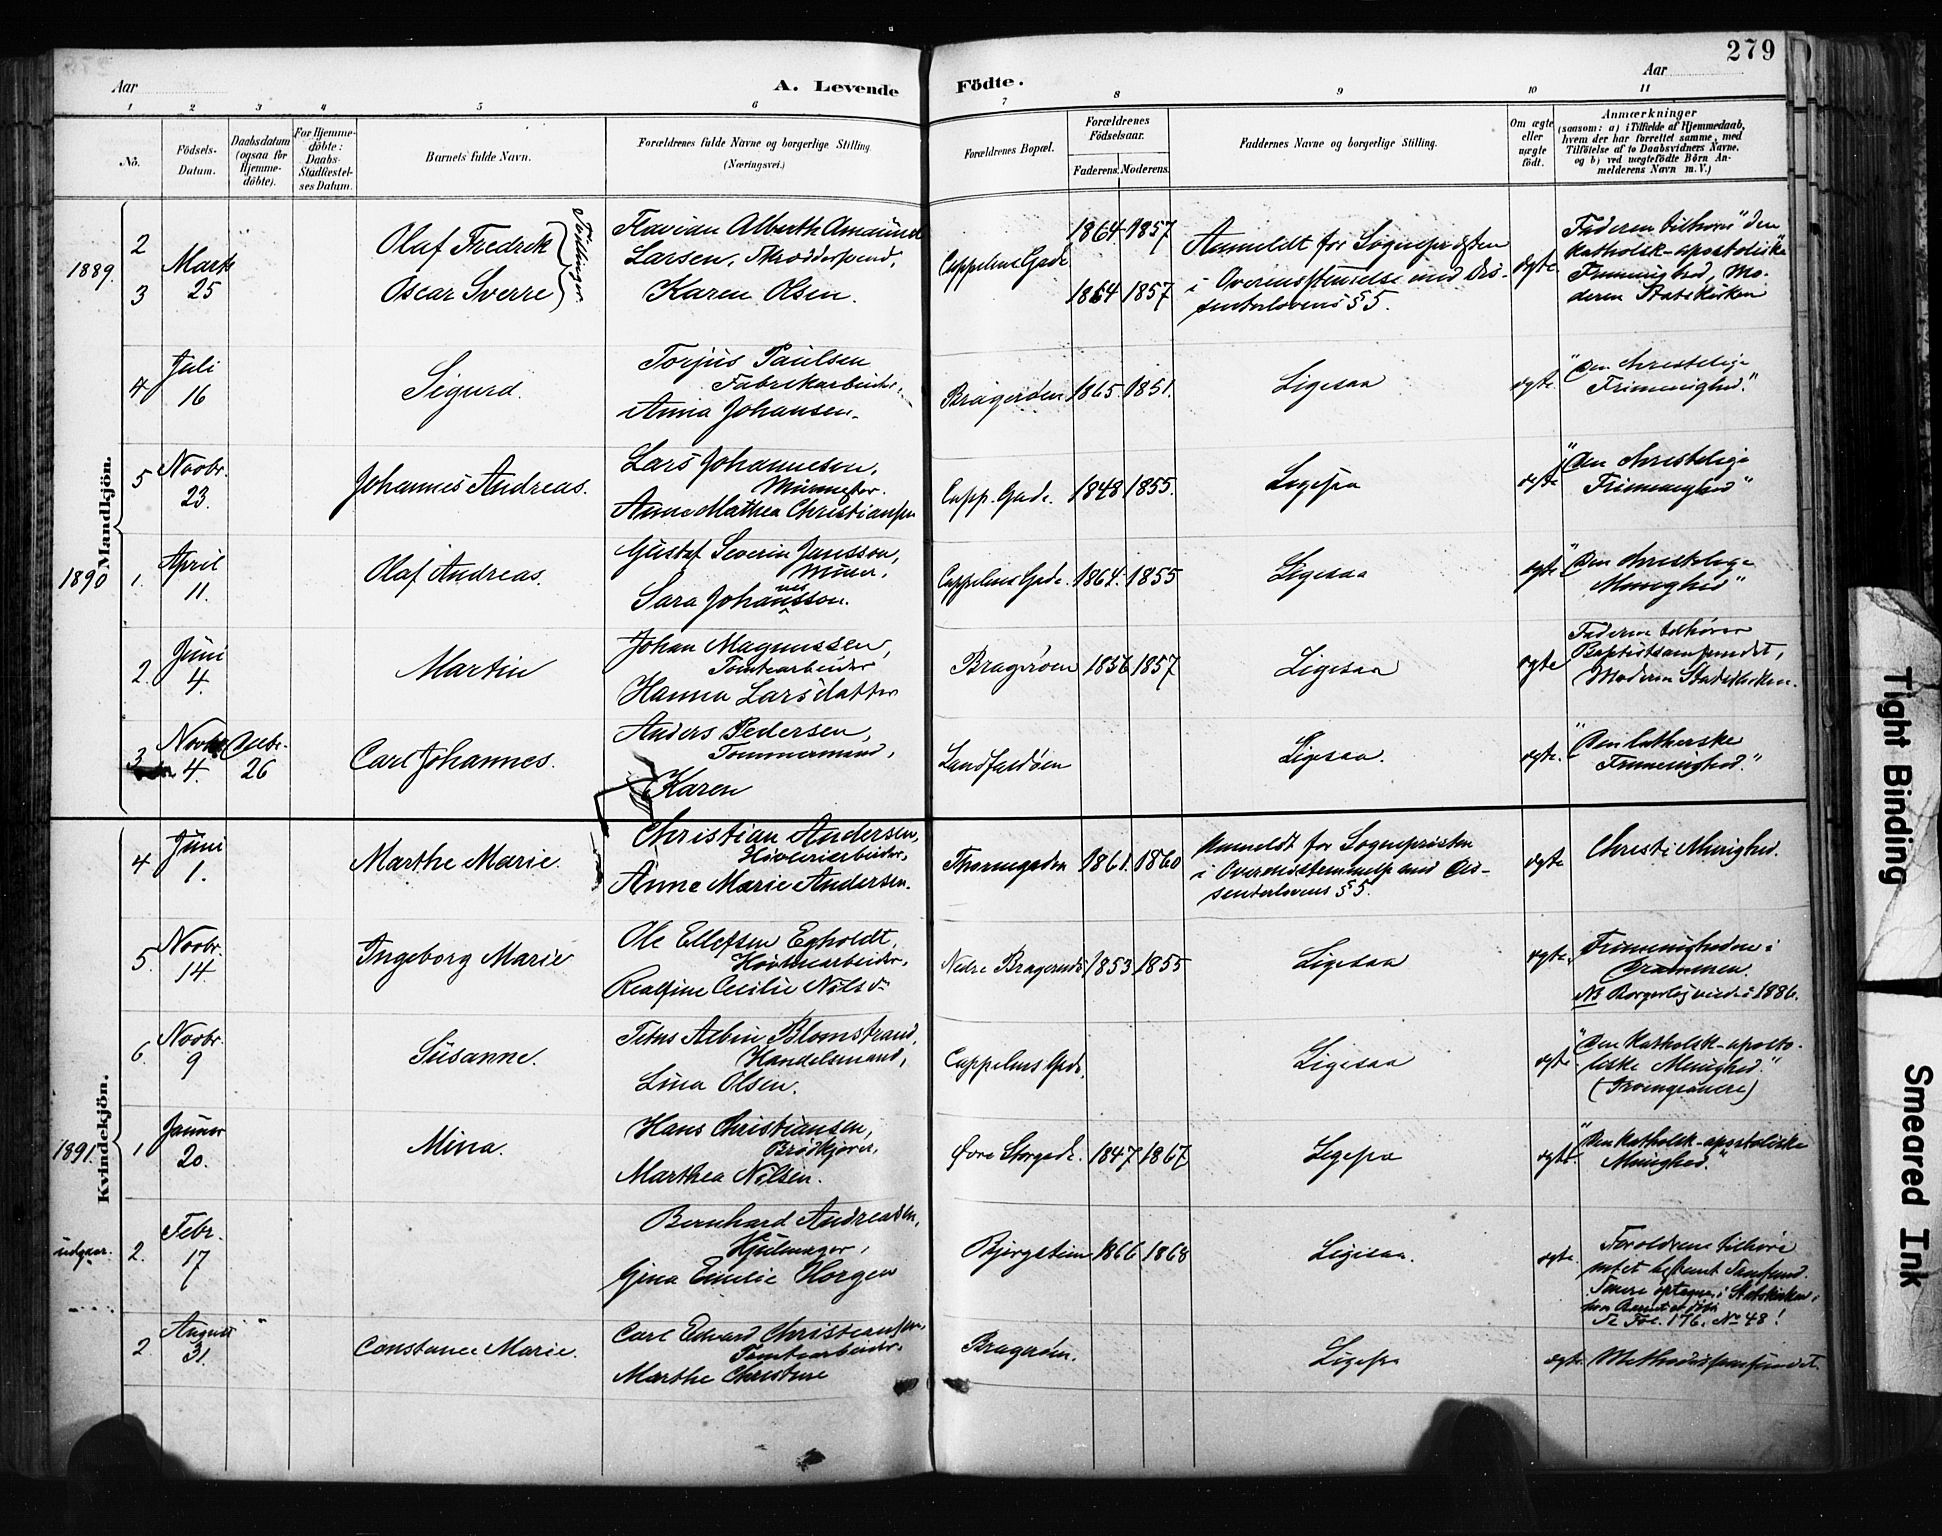 279
Aar
A. Levende
Födte.
Aar
1 2 3 4 5 6 7 8 9 10 11
No.
Födsels-Datum.
Daabsdatum (ogsaa for Hjemme-döbte).
For Hjemme-döbte: Daabs-Stadfæstel-ses Datum.
Barnets fulde Navn.
Forældrenes fulde Navne og borgerlige Stilling
(Næringsvei.)
Forældrenes Bopæl.
Forældrenes Födselsaar.
Faderens. Moderens.
Faddernes Navne og borgerlige Stilling.
Om ægte eller uægte födt.
Anmærkninger
(saasom: a) i Tilfælde af Hjemmedaab,
hvem der har forrettet samme, med
Tilföielse af to Daabsvidners Navne,
og b) ved uægtefödte Börn An-
melderens Navn m. V.)
Mandkjön.
1889.
2
3
Marts
25
Olaf Fredrik
Oscar Sverre
Tvillinger
Larsen,
Karen Olsen.
Cappelens Gade
1864 1857
1864 1857
Anmeldt for Sognepræsten
i Overensstemmelse med Dis-
senterlovens § 5.
ægte
Faderen tilhører "den
katholsk-apostoliske
Frimenighed", Mo-
deren Statskirken
4
Juli
16
Sigurd.
Torjus Paulsen
Fabrikarbeider,
Anna Johansen.
Bragerøen 1865. 1851.
Ligesaa
ægte
"Den christelige
Frimenighed."
5
Novbr.
23.
Johannes Andreas.
Lars Johannesen,
Murmester.
Anne Mathea Christiansen
Capp. Gade. 1848 1855.
Ligesaa
ægte
"Den christelige
Frimenighed"
1890
1.
April
11.
Olaf Andreas.
Gustaf Severin Jansson,
Murer,
Sara Johansson.
Cappelens Gade. 1864. 1855
Ligesaa
ægte
"Den christelige
Menighed"
2.
Juni
4.
Martin
Johan Magnussen,
Tomtearbeider
Hanna Larsdatter
Bragerøen 1856 1857
Ligesaa
ægte
Faderen tilhører
Baptistsamfundet,
Moderen Statskirken.
3
Novbr
4.
Decbr.
26
Carl Johannes.
Anders Pedersen,
Tømmermand,
Karen
Landfaldøen
Ligesaa.
ægte.
"Den lutherske
Frimenighed."
Kvindekjön.
4
Juni
1.
Marthe Marie.
Christian Andersen,
Høvleriarbeider,
Anne Marie Andersen.
Thornegaden 1861. 1860
Anmeldt for Sognepræsten
i Overensstemmelse med Dis-
senterlovens § 5.
ægte
Christi Menighed.
5.
Novbr.
14.
Ingeborg Marie
Ole Ellefsen Egholdt,
Høvleriarbeider,
Cecilie Nilsd.
Nedre 1853 1855
Ligesaa
ægte.
Frimenigheden i
Drammen.
NB. Borgerlig viede i 1886.
6.
Novbr.
9
Susanne.
Blomstrand,
Handelsmand,
Lina Olsen.
Cappelens Gade.
Ligesaa
ægte
"Den katholsk-aposto-
liske Menighed."
(Irvingeanere)
1891.
1
Januar
20.
Mina.
Hans Christiansen,
Brødkjører,
Marthea Nilsen.
Øvre Storgade. 1847 1867
Ligesaa
ægte.
"Den katholsk-apostoliske
Menighed."
udgaar.
2.
Febr.
17
Bernhard Andreasen,
Hjulmager,
Gina Emilie Horgen
Bjergstien 1866 1868
Ligesaa.
ægte
Forældrene tilhøre
intet bestemt Samfund.
Senere optagne i Statskirken,
Se Fol. 176. No 48!
2
August
31.
Constance Marie.
Carl Edvard Christiansen,
Tomtearbeider,
Marthe Christine
Bragerøen.
Ligesaa
ægte
Methodistsamfundet.
Tight Binding
Smeared Ink